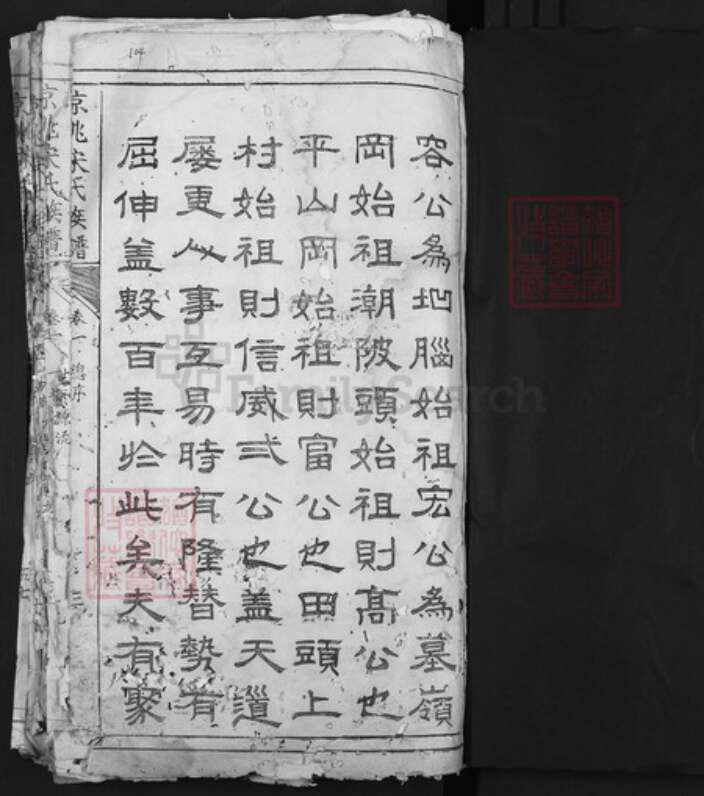 容公為地腦始祖宏公為墓嶺
岡始祖潮陂頭始祖則高公也
平山岡始祖則富公也田頭上
村始祖則信威弍公也蓋天道
屡更人事互易時有隆替勢有
屈伸蓋數百年於此矣夫有家
京兆宋氏族譜
卷一
總序
京兆宋氏族譜
FamilySearch